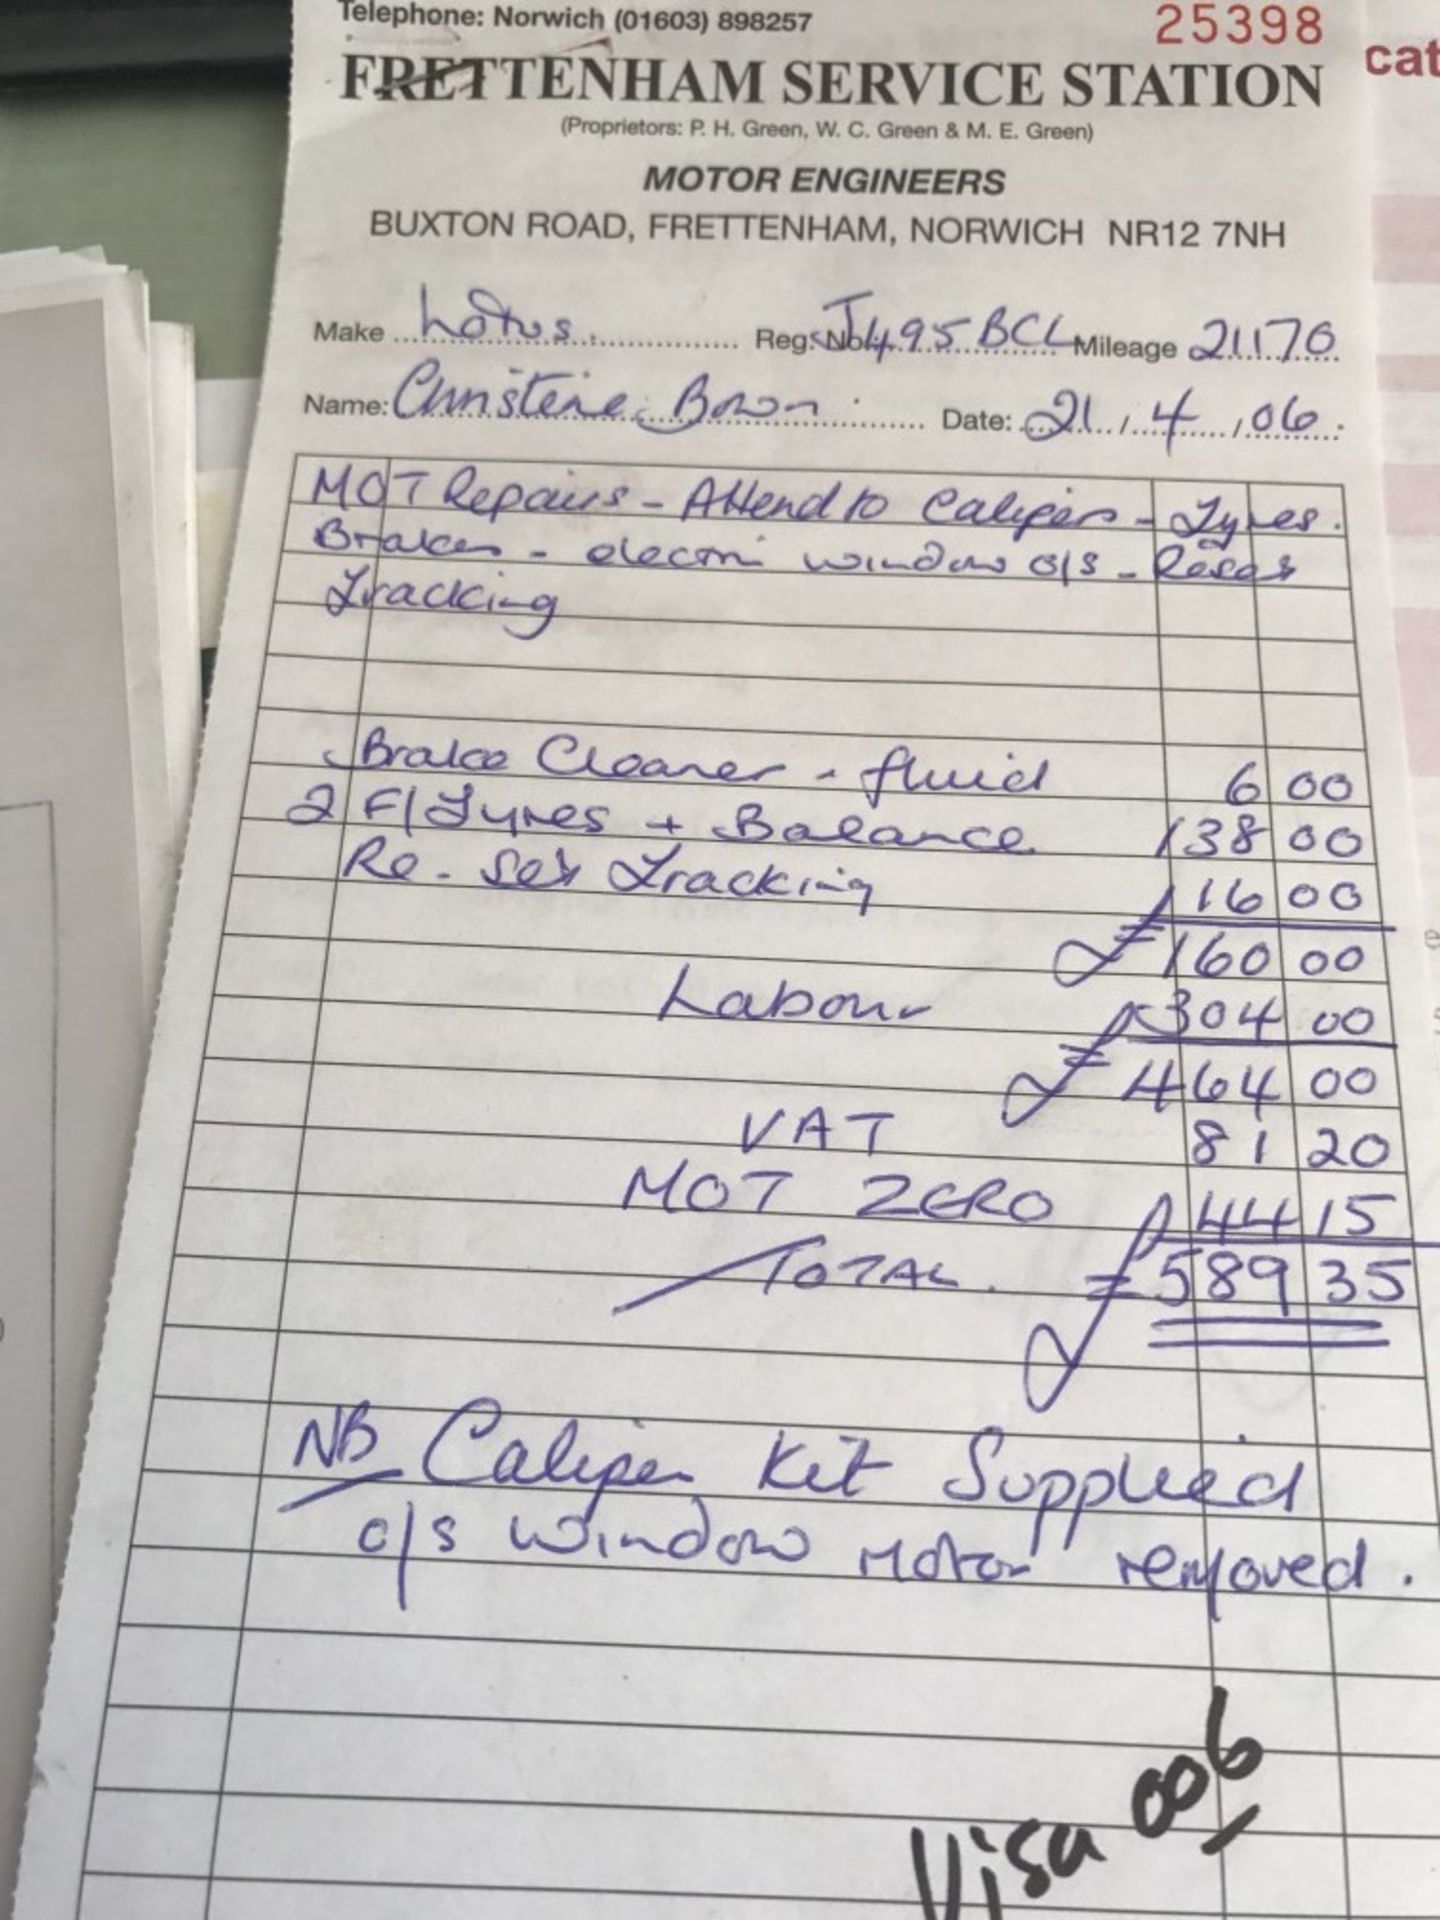 Telephone: Norwich (01603) 898257 25398
FRETTENHAM SERVICE STATION
(Proprietors: P. H. Green, W. C. Green & M. E. Green)
MOTOR ENGINEERS
BUXTON ROAD, FRETTENHAM, NORWICH NR12 7NH
Make Lotus. Reg. No. J495 BCL Mileage 21170
Name: Christine Date: 21 / 4 / 06
MOT Repairs - Attend to Calipers - Tyres.
Brakes - electric window o/s - Reset
Tracking
Brake Cleaner - fluid 6 00
2 F/Tyres + Balance 138 00
Re-set Tracking 16 00
160 00
Labour 304 00
464 00
VAT 81 20
MOT ZERO 44 15
TOTAL. 589 35
NB Caliper Kit Supplied
o/s window motor removed.
Visa 006
cat